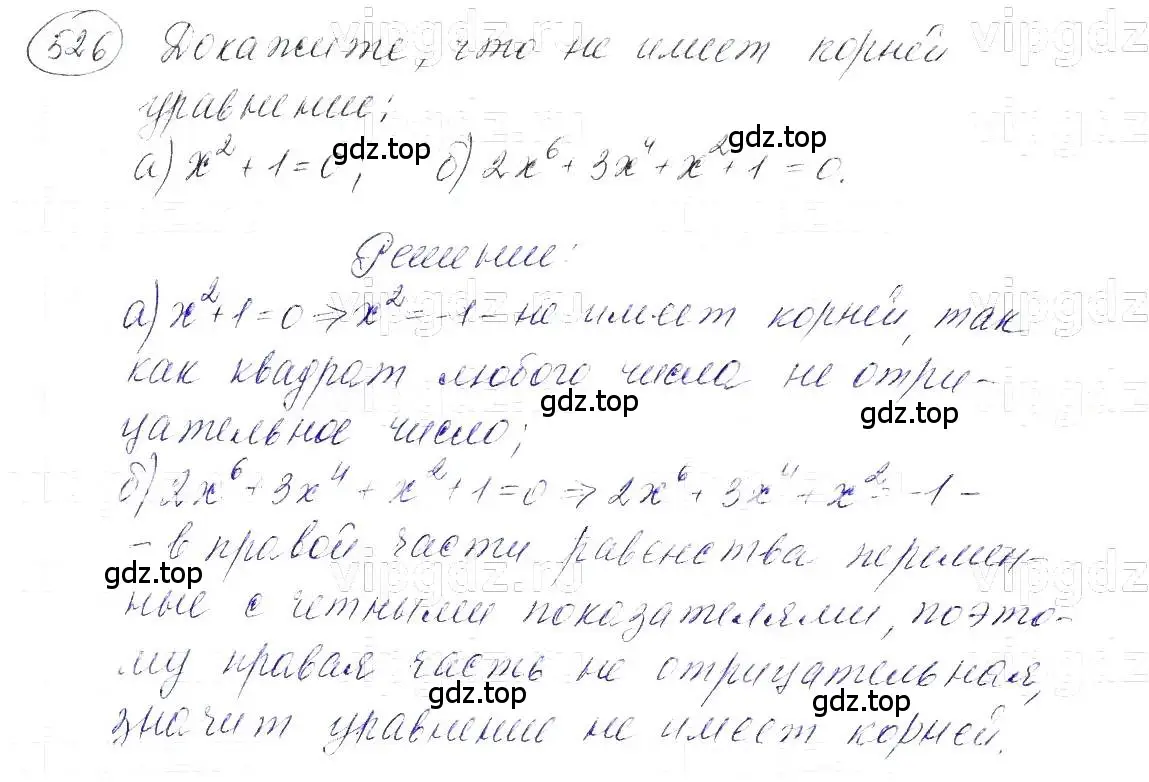 526 Докажите, что не имеет корней
уравнение:
а) x² + 1 = 0; б) 2x⁶ + 3x⁴ + x² + 1 = 0.
Решение:
а) x² + 1 = 0 ⇒ x² = -1 - не имеет корней, так
как квадрат любого числа не отри-
цательное число;
б) 2x⁶ + 3x⁴ + x² + 1 = 0 ⇒ 2x⁶ + 3x⁴ + x² = -1 -
- в правой части равенства перемен-
ные с четными показателями, поэто-
му правая часть не отрицательная,
значит уравнение не имеет корней.
gdz.top
gdz.top
gdz.top
gdz.top
gdz.top
gdz.top
gdz.top
vipgdz.ru
vipgdz
vipgdz.ru
vipgdz
vipgdz.ru
vipgdz